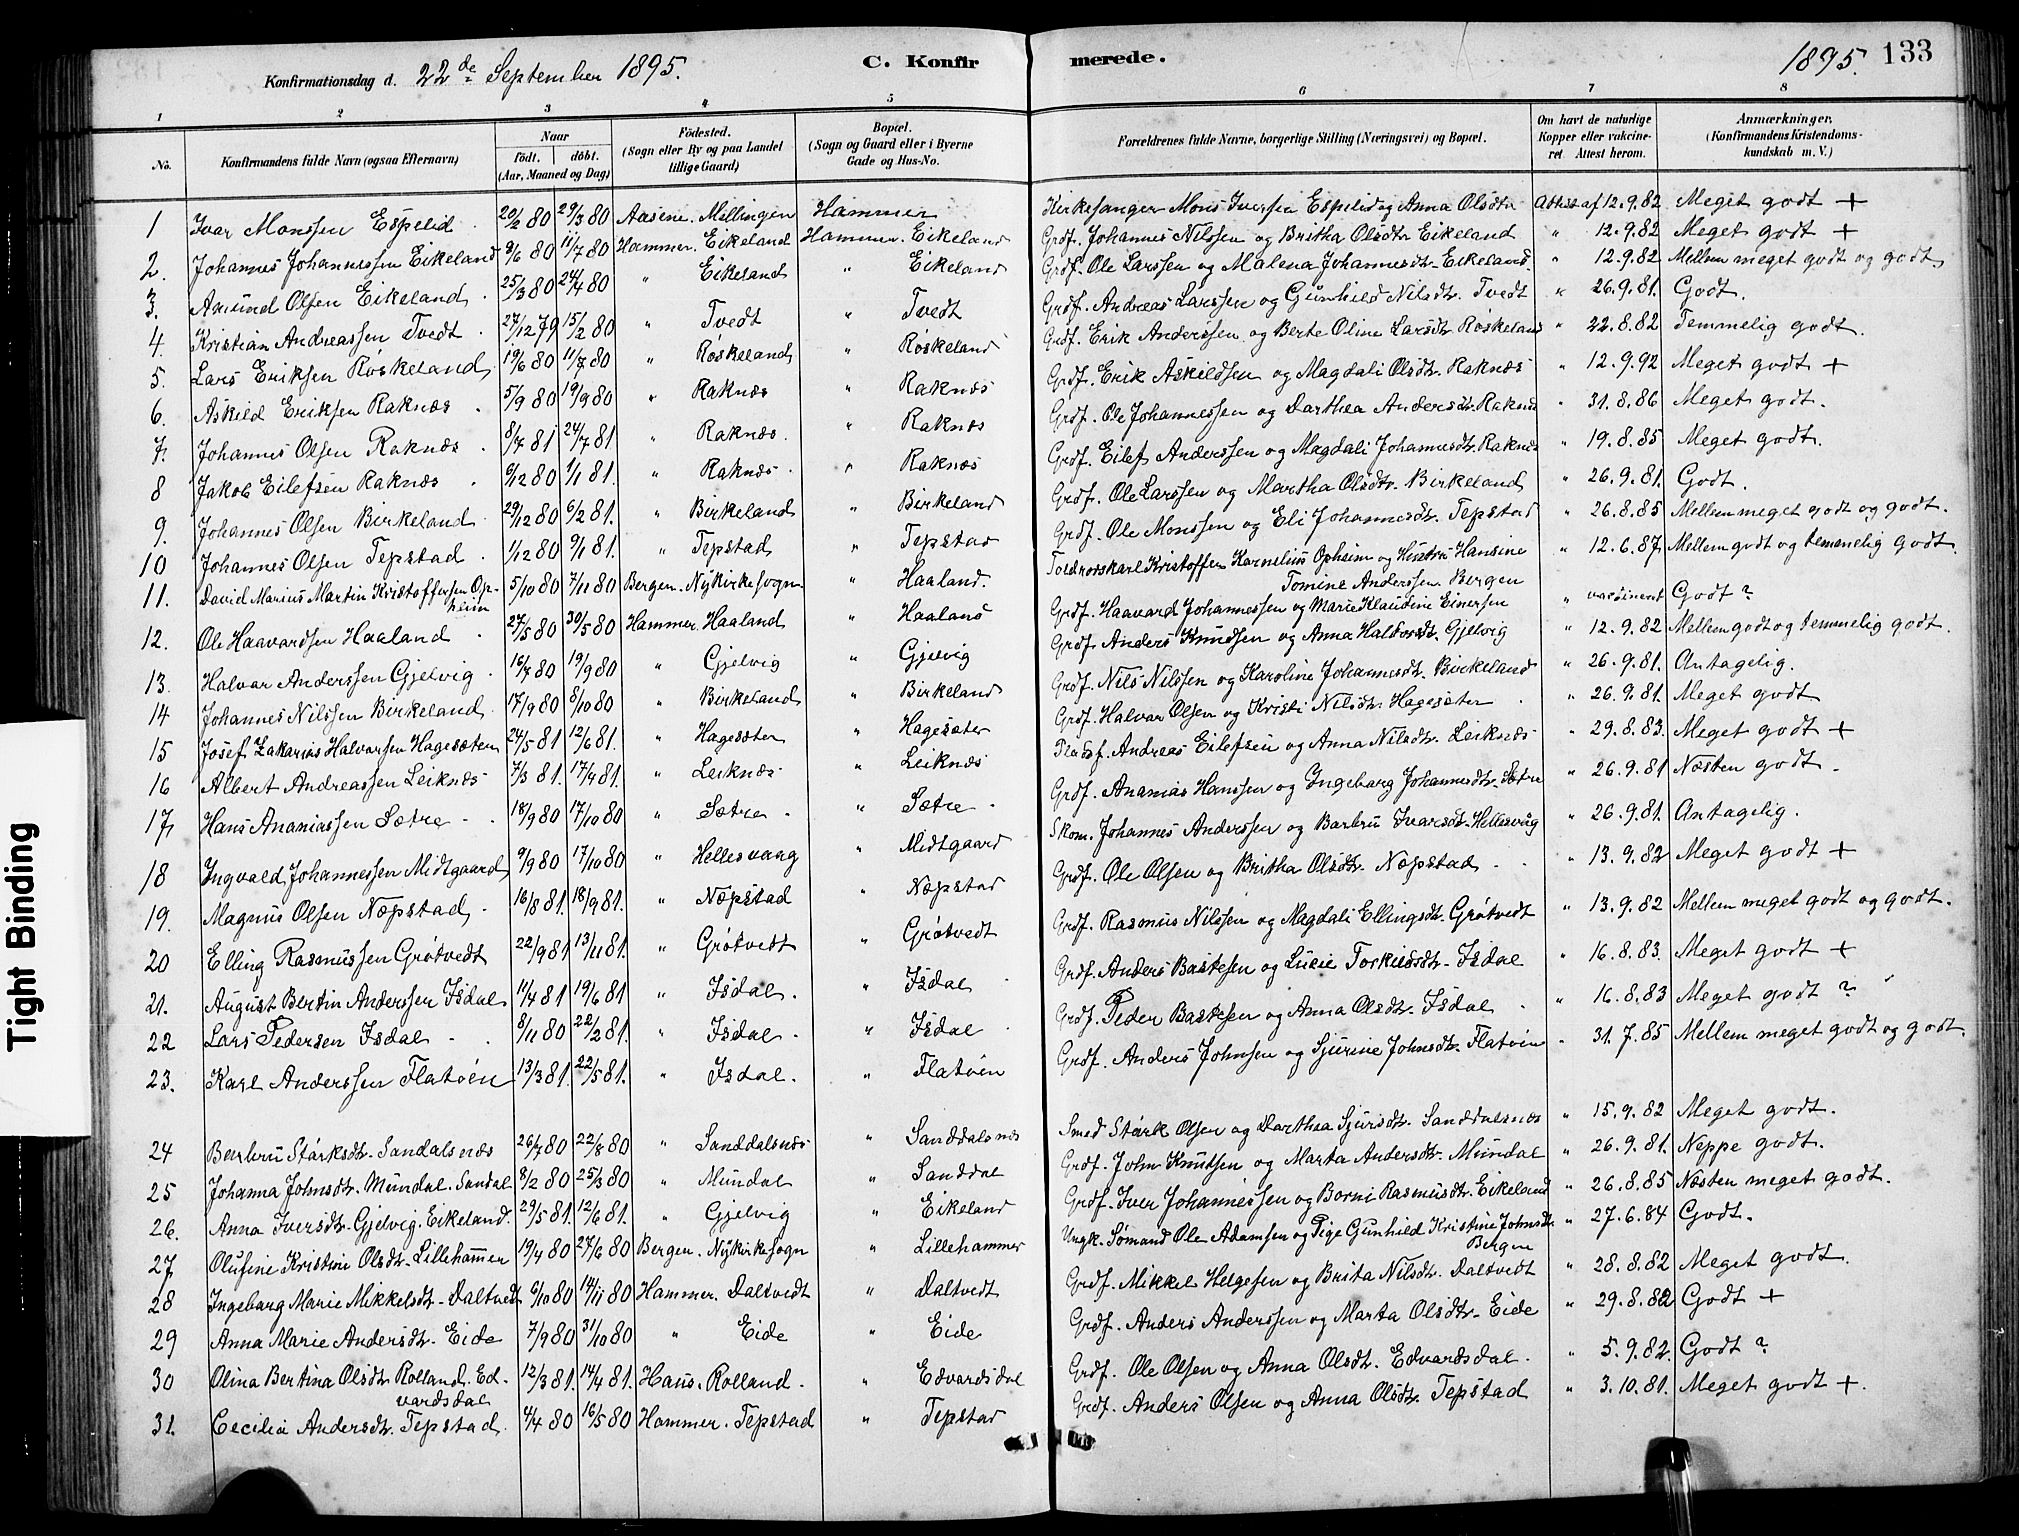 Konfirmationsdag d. 22de September 1895. C. Konfirmerede. 1895. 133
1 2 3 4 5 6 7 8
No. Konfirmandens fulde Navn (ogsaa Efternavn) Naar födt. döbt. (Aar, Maaned og Dag) Födested. (Sogn eller By og paa Landet tillige Gaard) Bopæl. (Sogn og Gaard eller i Byerne Gade og Hus-No. Forældrenes fulde Navne, borgerlige Stilling (Næringsvei) og Bopæl. Om havt de naturlige Kopper eller vakcineret. Attest herom. Anmærkninger. (Konfirmandens Kristendomskundskab m. V.)
1 Ivar Monssen Espelid 20/2 80 29/3 80 Aasene. Millingen Hammer Kirkesanger Mons Iversen Espelid og Anna Olsdtr Attest af 12.9.82 Meget godt +
2. Johannes Johannessen Eikeland 9/6 80 11/7 80 Hammer. Eikeland Hammer. Eikeland Grdf. Johannes Nilssen og Britha Olsdtr Eikeland " 12.9.82 Meget godt +
3. Amund Olsen Eikeland 25/3 80 24/4 80 " Eikeland " Eikeland Grdf. Ole Larssen og Malena Johannesdtr. Eikeland. " 12.9.82 Mellem meget godt og godt
4. Kristian Andreassen Tvedt 27/12 79 15/2 80 " Tvedt " Tvedt Grdf. Andreas Larssen og Gunhild Nilsdtr. Tvedt " 26.9.81. Godt.
5. Lars Eriksen Röskeland 19/6 80 11/7 80 " Röskeland " Röskeland Grdf. Erik Anderssen og Berte Oline Larsdtr Röskeland " 22.8.82 Temmelig godt.
6. Askild Eriksen Raknæs 5/9 80 19/9 80 " Raknæs " Raknæs Grdf. Erik Askildsen og Magdali Olsdtr. Raknæs " 12.9.92 Meget godt +
7. Johannes Olsen Raknæs 8/7 81 24/7 81 " Raknæs. " Raknæs Grdf. Ole Johannessen og Darthea Andersdtr. Raknæs " 31.8.86 Meget godt.
8 Jakob Eilefsen Raknæs 6/12 80 1/1 81. " Raknæs " Raknæs Grdf. Eilef Anderssen og Magdali Johannesdtr. Raknæs " 19.8.85 Meget godt.
9. Johannes Olsen Birkeland 29/12 80 6/2 81. " Birkeland " Birkeland Grdf. Ole Larssen og Martha Olsdtr. Birkeland " 26.9.81. Godt.
10 Johannes Olsen Tepstad 1/12 80 9/1 81. " Tepstad " Tepstad Grdf. Ole Monssen og Eli Johannesdtr. Tepstad " 26.8.85 Mellem meget godt og godt.
11. David Marius Martin Kristoffersen Opheim 5/10 80 7/11 80 Bergen. Nykirkesogn " Haaland. Toldrorskarl Kristoffer Kornelius Opheim og Hustru Hansine Tomine Anderssen Bergen " 12.6.87 Mellem godt og temmelig godt.
12. Ole Haavardsen Haaland 27/5 80 30/5 80 Hammer. Haaland " Haaland Grdf. Haavard Johannessen og Marie Klaudine Einersen " vaccineret Godt ?
13. Halvar Anderssen Gjelvig 16/7 80 19/9 80 " Gjelvig " Gjelvig Grdf. Anders Knudsen og Anna Haldorsdtr. Gjelvig " 12.9.82 Mellem godt og temmelig godt.
14 Johannes Nilssen Birkeland 17/9 80 8/10 80 " Birkeland " Birkeland Grdf. Nils Nilssen og Karoline Johannesdtr. Birkeland " 26.9.81. Antagelig.
15 Josef Zakarias Halvarsen Hagesæter 24/5 81 12/6 81. " Hagesæter " Hagesæter Grdf. Halvar Olsen og Kristi Nilsdtr. Hagesæter " 26.9.81. Meget godt
16 Albert Andreassen Leiknæs 7/3 81. 17/4 81. " Leiknæs " Leiknæs Pladsf. Andreas Eilefsen og Anna Nilsdtr. Leiknæs " 29.8.83. Meget godt +
17. Hans Ananiassen Sætre 18/9 80 17/10 80 " Sætre " Sætre Grdf. Ananias Hanssen og Ingeborg Johannesdtr. Sætre " 26.9.81 Næsten godt
18 Ingvald Johannessen Midtgaard 9/9 80 17/10 80 " Hellesvaag " Midtgaard Skom. Johannes Anderssen og Barbru Ivarsdtr. Hellesvåg " 26.9.81. Antagelig.
19. Magnus Olsen Næpstad 16/8 81. 18/9 81. " Næpstad " Næpstad Grdf. Ole Olsen og Britha Olsdtr. Næpstad " 13.9.82 Meget godt +
20 Elling Rasmussen Grötvedt 22/9 81 13/11 81. " Grötvedt " Grötvedt Grdf. Rasmus Nilssen og Magdali Ellingsdtr. Grötvedt " 13.9.82 Mellem meget godt og godt.
21. August Bertin Anderssen Isdal 11/4 81 19/6 81 " Isdal. " Isdal Grdf. Anders Bastesen og Lucie Torkildsdtr. Isdal " 16.8.83. Meget godt +
22 Lars Pedersen Isdal 8/11 80 22/2 81. " Isdal " Isdal Grdf. Peder Bastesen og Anna Olsdtr. Isdal " 16.8.83 Meget godt ?
23. Karl Anderssen Flatöen 13/3 81. 22/5 81. " Isdal. " Flatöen Grdf. Anders Johnsen og Sjurine Johnsdtr. Flatöen " 31.7.85 Mellem meget godt og godt.
24 Barbru Störksdtr. Sandalsnæs 26/7 80 22/8 80 " Sanddalsnæs " Sanddalsnæs Smed Störk Olsen og Darthea Sjursdtr. Sanddalsnæs " 15.9.82 Meget godt.
25 Johanna Johnsdtr. Mundal. Sandal 8/2 80 25/3 80 " Mundal " Sanddal Grdf. John Knutsen og Marta Andersdtr. Mundal " 26.9.81. Neppe godt.
26. Anna Iversdtr. Gjelvig. Eikeland. 29/5 81. 12/6 81. " Gjelvig " Eikeland Grdf. Iver Johannessen og Borni Rasmusdtr. Eikeland " 26.8.85 Næsten meget godt.
27. Olufine Kristine Olsdtr. Lillehammer 19/4 80 27/6 80 Bergen. Nykirkesogn " Lillehammer Ungk. Sömand Ole Adamsen og Pige Gunhild Kristine Johnsdtr. Bergen " 27.6.84 Godt.
28 Ingeborg Marie Mikkelsdtr. Daltvedt 6/10 80 14/11 80 Hammer. Daltvedt " Daltvedt Grdf. Mikkel Helgesen og Brita Nilsdtr. Daltvedt " 28.8.82 Meget godt.
29 Anna Marie Andersdtr. Eide 7/9 80 31/10 80 " Eide " Eide Grdf. Anders Anderssen og Marta Olsdtr. Eide " 29.8.82 Godt +
30 Olina Bertina Olsdtr. Rolland. Edvardsdal 12/3 81. 14/4 81. Haus. Rolland. " Edvardsdal Grdf. Ole Olsen og Anna Olsdtr. Edvardsdal. " 5.9.82. Godt ?
31. Cecilia Andersdtr. Tepstad 4/4 80 16/5 80 Hammer. Tepstad " Tepstad Grdf. Anders Olsen og Anna Olsdtr. Tepstad " 3.10.81. Meget godt +
Tight Binding